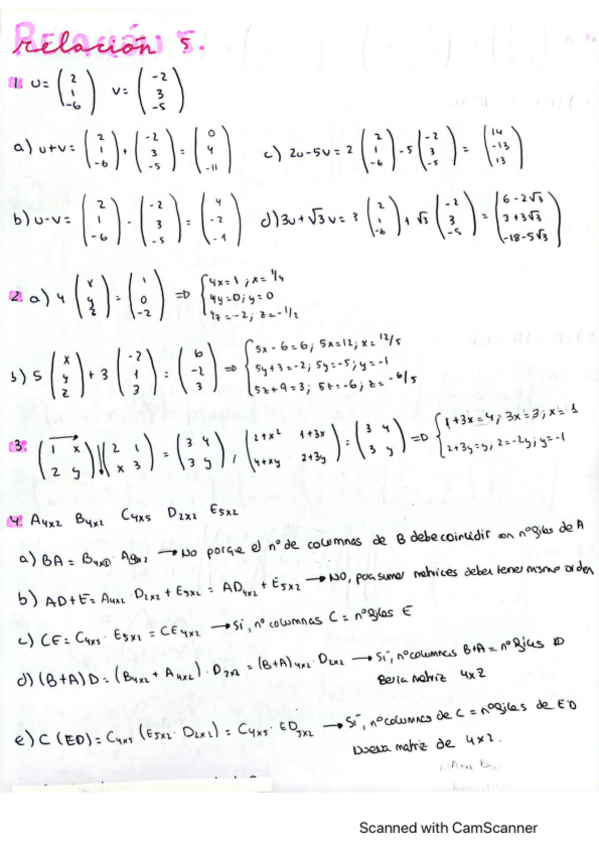 Relación 5.
1. u = (2 1 -6) v = (-2 3 -5)
a) u+v = (2 1 -6) + (-2 3 -5) = (0 4 -11) c) 2u-5v = 2 (2 1 -6) - 5 (-2 3 -5) = (14 -13 13)
b) u-v = (2 1 -6) - (-2 3 -5) = (4 -2 -1) d) 3u+√3v = 3 (2 1 -6) + √3 (-2 3 -5) = (6-2√3 3+3√3 -18-5√3)
2. a) 4 (x y z) = (1 0 -2) => { 4x=1; x=1/4
4y=0; y=0
4z=-2; z=-1/2
b) 5 (x y z) + 3 (-2 1 3) = (6 -2 3) => { 5x-6=6; 5x=12; x=12/5
5y+3=-2; 5y=-5; y=-1
5z+9=3; 5z=-6; z=-6/5
3. (1 x 2 y) (2 1 x 3) = (3 4 3 y); (2+x² 1+3x 4+xy 2+3y) = (3 4 3 y) => { 1+3x=4; 3x=3; x=1
2+3y=y; 2=-2y; y=-1
4. A4x2 B4x2 C4x5 D2x2 E5x2
a) BA = B4x2 · A4x2 → No porque el nº de columnas de B debe coincidir con nº filas de A
b) AD+E = A4x2 · D2x2 + E5x2 = AD4x2 + E5x2 → NO, para sumar matrices deben tener mismo orden
c) CE = C4x5 · E5x2 = CE4x2 → Sí, nº columnas C = nº filas E
d) (B+A)D = (B4x2 + A4x2) · D2x2 = (B+A)4x2 · D2x2 → Sí, nº columnas B+A = nº filas D
matriz 4x2
e) C(ED) = C4x5 (E5x2 · D2x2) = C4x5 · ED5x2 → Sí, nº columnas de C = nº filas de ED
Nueva matriz de 4x2.
Scanned with CamScanner